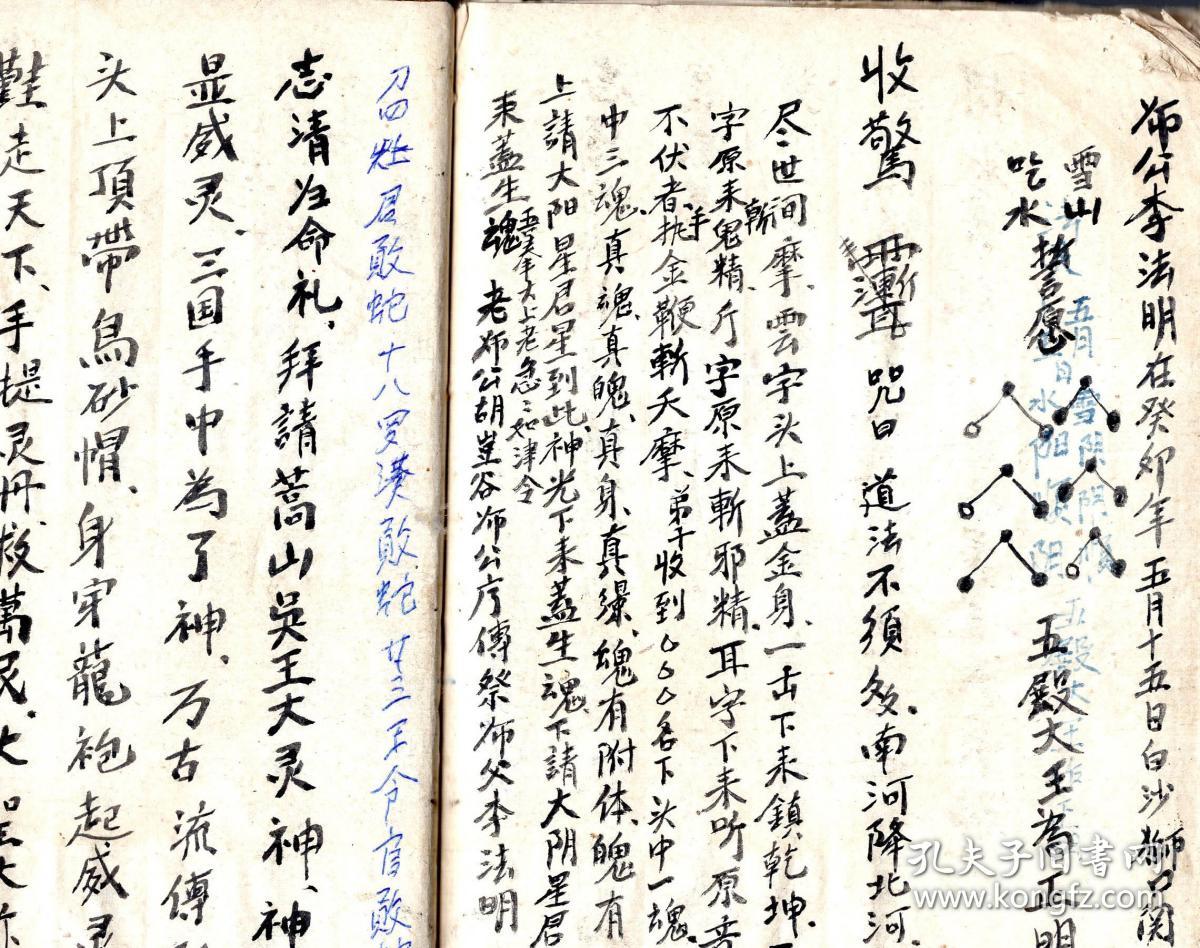 师公李法明在癸卯年五月十五日白沙獅口関
雪山
吃水
誓愿
五殿大王為正明
收驚
咒曰 道法不須多、南河降北河、
尽世间摩、雲字头上蓋金身、一击下来鎮乾坤、一
字原来鬼精、斤字原来斬邪精、耳字下来听原音
不伏者、执金鞭斬夭摩、弟子收到△△△名下头中一魂、
中三魂、真魂、真魄、真身、真缐、魂有附体、魄有
上請大阳星君星到此、神光下来蓋生魂、下請大阴星君
来蓋生魂 老师公胡崑谷师公庁傳祭师父李法明
吾奉大上老急二如津令
召 君敢蛇十八罗漢敢蛇 三 令官敢蛇
志清归命礼、拜請蒿山吳王大灵神、神
显威灵、三国手中為了神、万古流傳
头上頂帶烏砂帽、身穿蘢袍起威灵
難走天下、手提灵丹救萬民、